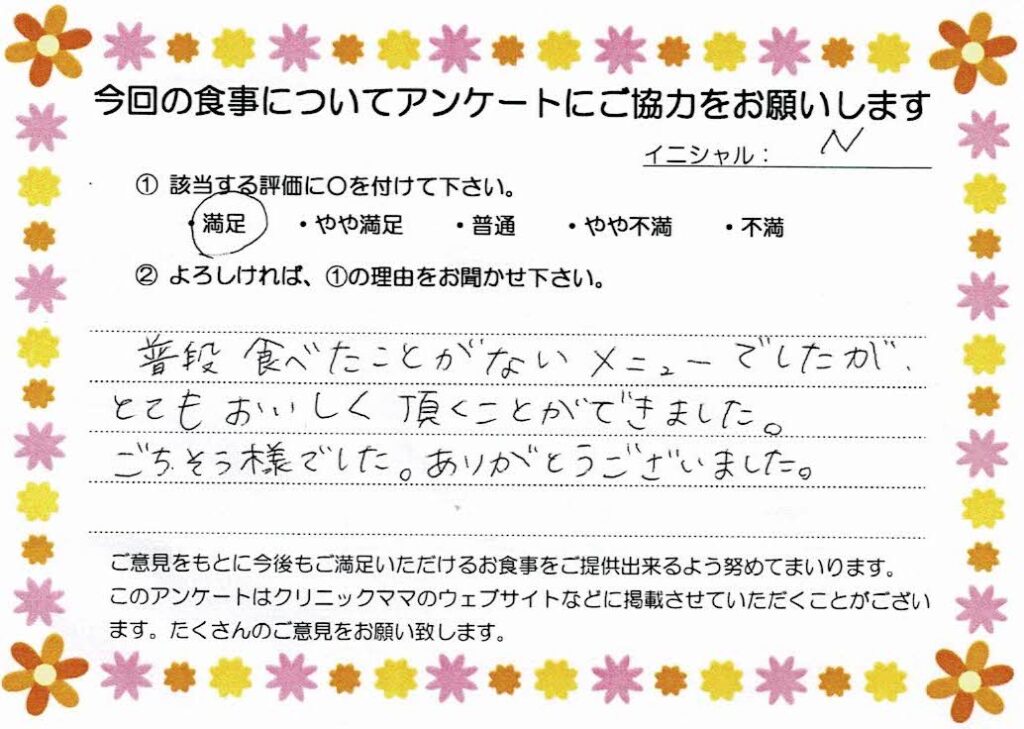 今回の食事についてアンケートにご協力をお願いします
イニシャル： N
① 該当する評価に〇を付けて下さい。
・満足 ・やや満足 ・普通 ・やや不満 ・不満
② よろしければ、①の理由をお聞かせ下さい。
普段 食べたことがない メニューでしたが、
とても おいしく 頂くことができました。
ごちそう様でした。ありがとうございました。
ご意見をもとに今後もご満足いただけるお食事をご提供出来るよう努めてまいります。
このアンケートはクリニックママのウェブサイトなどに掲載させていただくことがござい
ます。たくさんのご意見をお願い致します。